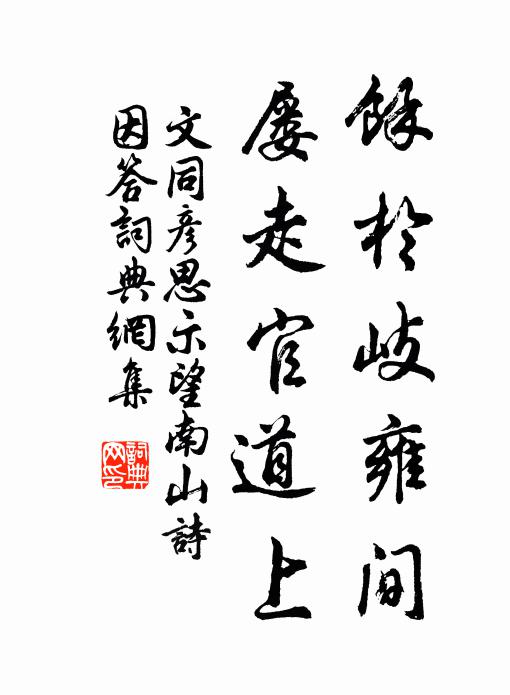 餘於岐雍間
屡走官道上
文同彦思示望南山詩
因答詞典網集
詞典
网印